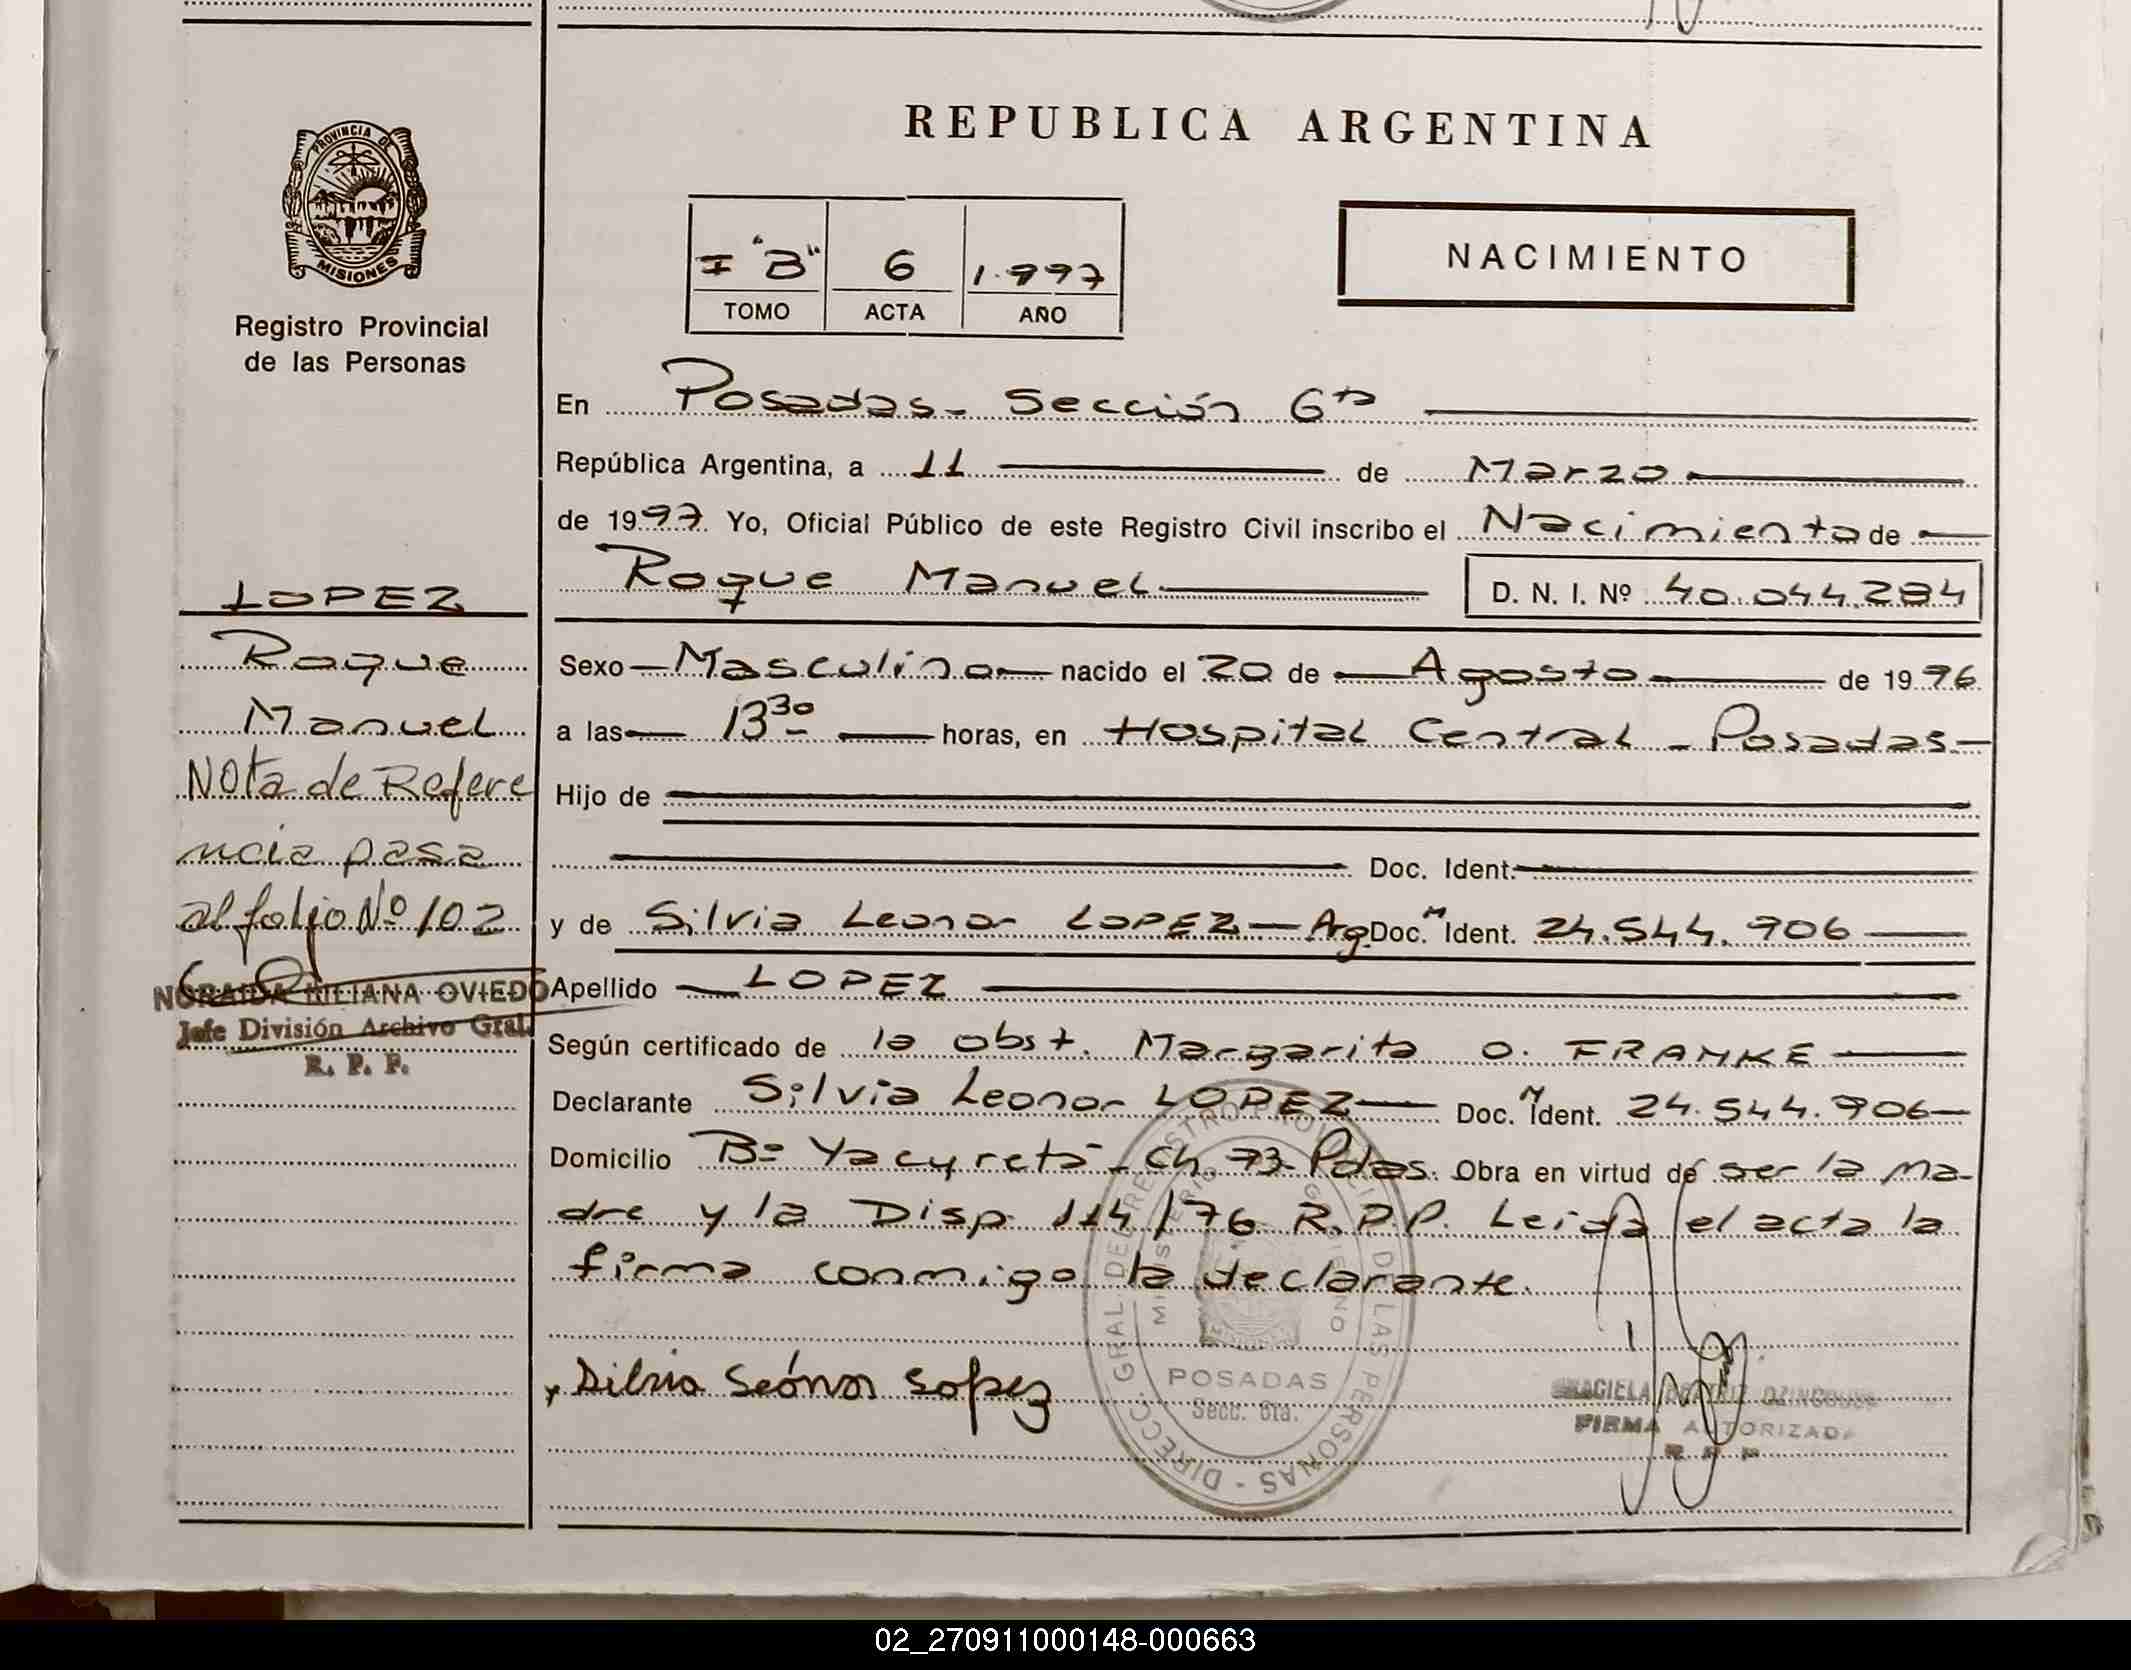 PROVINCIA DE
MISIONES
Registro Provincial
de las Personas
REPUBLICA ARGENTINA
I "B" 6 1.997
TOMO ACTA AÑO
NACIMIENTO
En Posadas - Sección 6ta
República Argentina, a 11 de Marzo
de 1997 Yo, Oficial Público de este Registro Civil inscribo el Nacimiento de
Roque Manuel D. N. I. Nº 40.044.284
Sexo Masculino nacido el 20 de Agosto de 1996
a las 13 30 horas, en Hospital Central - Posadas
Hijo de
Doc. Ident.
y de Silvia Leonor LOPEZ - Arg Doc. M Ident. 24.544.906
Apellido LOPEZ
Según certificado de la obst. Margarita O. FRANKE
Declarante Silvia Leonor LOPEZ Doc. M Ident. 24.544.906
Domicilio Bº Yacyretá - Ch 73 - Pdas. Obra en virtud de ser la ma-
dre y la Disp 114/76 R.P.P. Leida el acta la
firma conmigo la declarante.
LOPEZ
Roque
Manuel
Nota de Refere
ncia pasa
al folio Nº 102
NORAIDA LILIANA OVIEDO
Jefe División Archivo Gral.
R. P. P.
Silvia Leonor Lopez
DIRECC. GRAL. DEL REGISTRO PROVINCIAL DE LAS PERSONAS -
MINISTERIO GOBIERNO
POSADAS
Secc. 6ta.
GRACIELA BEATRIZ
FIRMA AUTORIZADA
R P P
02_270911000148-000663